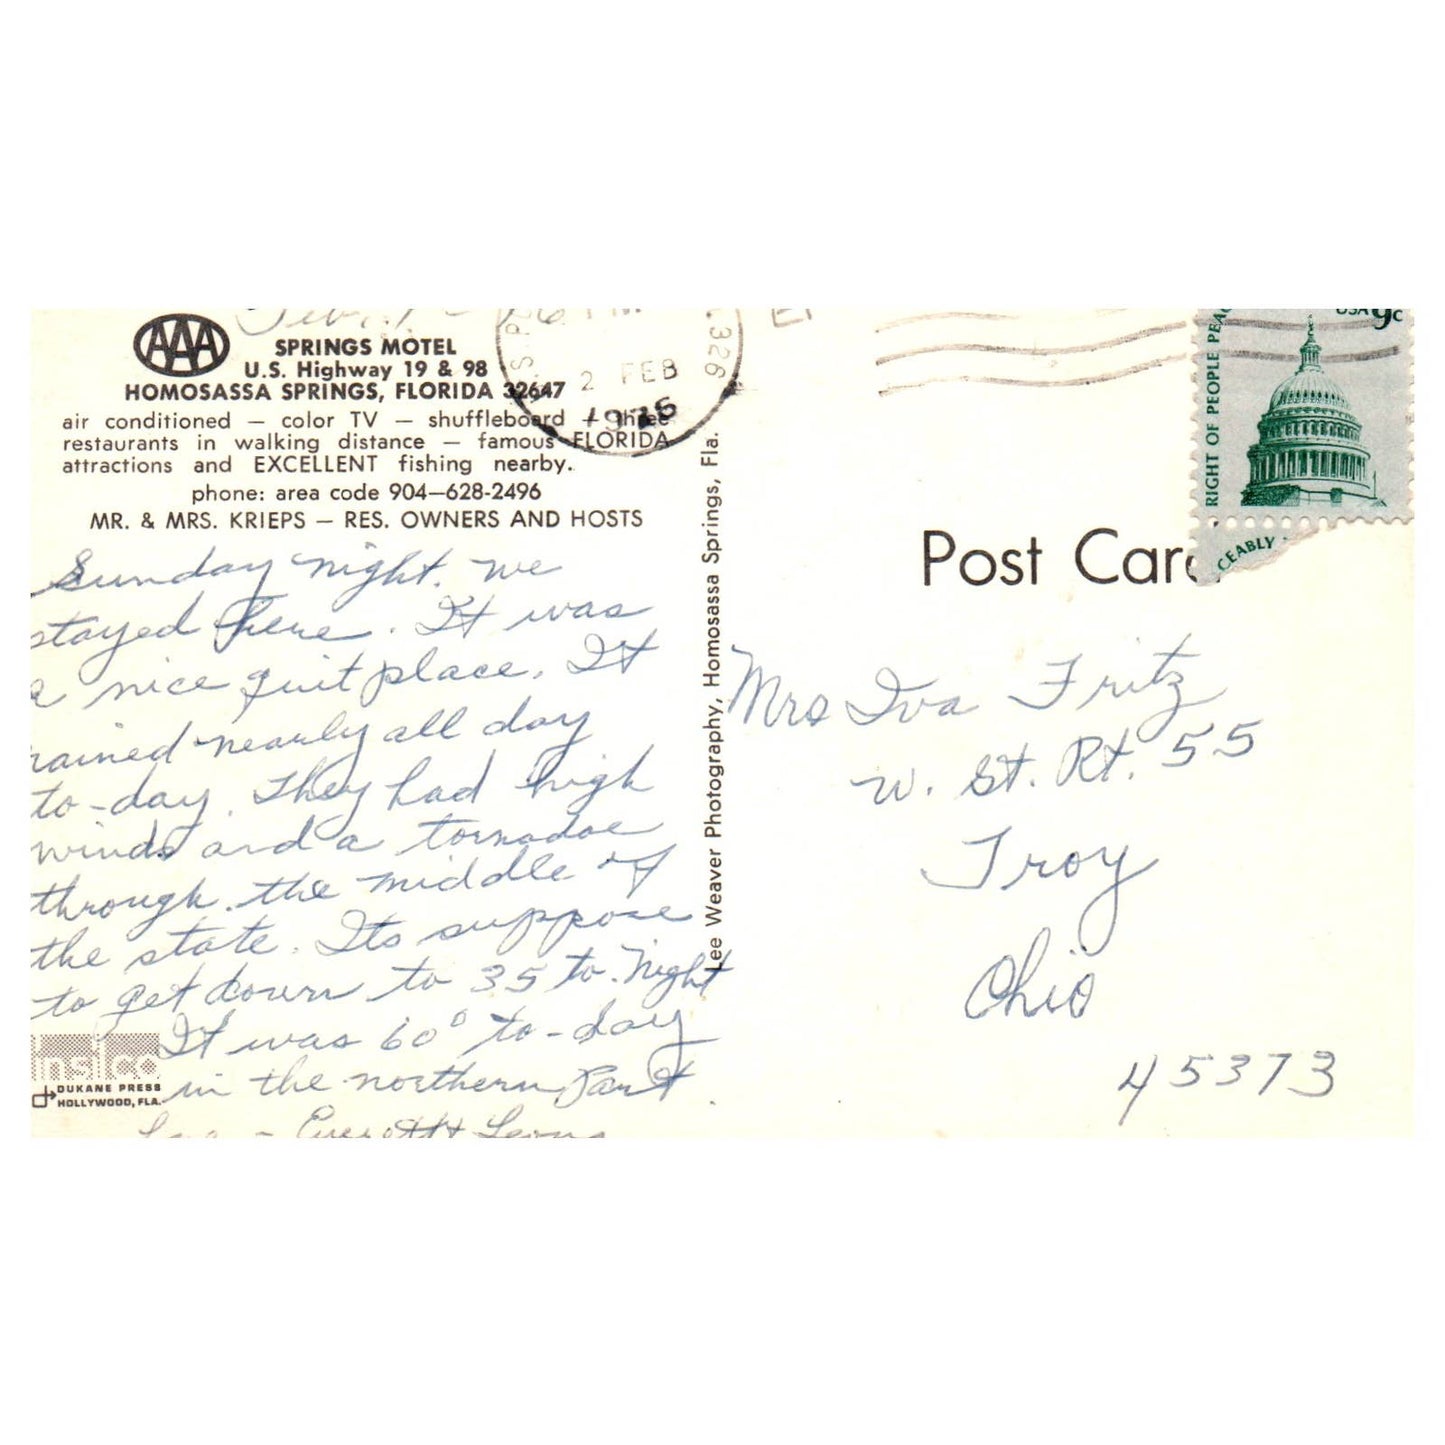 AAA
SPRINGS MOTEL
U.S. Highway 19 & 98
HOMOSASSA SPRINGS, FLORIDA 32647
air conditioned — color TV — shuffleboard — three
restaurants in walking distance — famous FLORIDA
attractions and EXCELLENT fishing nearby.
phone: area code 904—628-2496
MR. & MRS. KRIEPS — RES. OWNERS AND HOSTS
Sunday night. we
stayed here. It was
a nice quit place. It
rained nearly all day
to-day. They had high
winds and a tornadoe
through the middle of
the state. Its suppose
to get down to 35 to-night
It was 60° to-day
in the northern Part.
Everett & Leona
insilco
DUKANE PRESS
HOLLYWOOD, FLA.
Lee Weaver Photography, Homosassa Springs, Fla.
PM
2 FEB
326
USA 9c
RIGHT OF PEOPLE PEAC
CEABLY
Post Card
Mrs Iva Fritz
W. St. Rt. 55
Troy
Ohio
45373